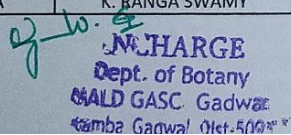 K. RANGA SWAMY
INCHARGE
Dept. of Botany
MALD GASC. Gadwal
Gadwal Dist-509